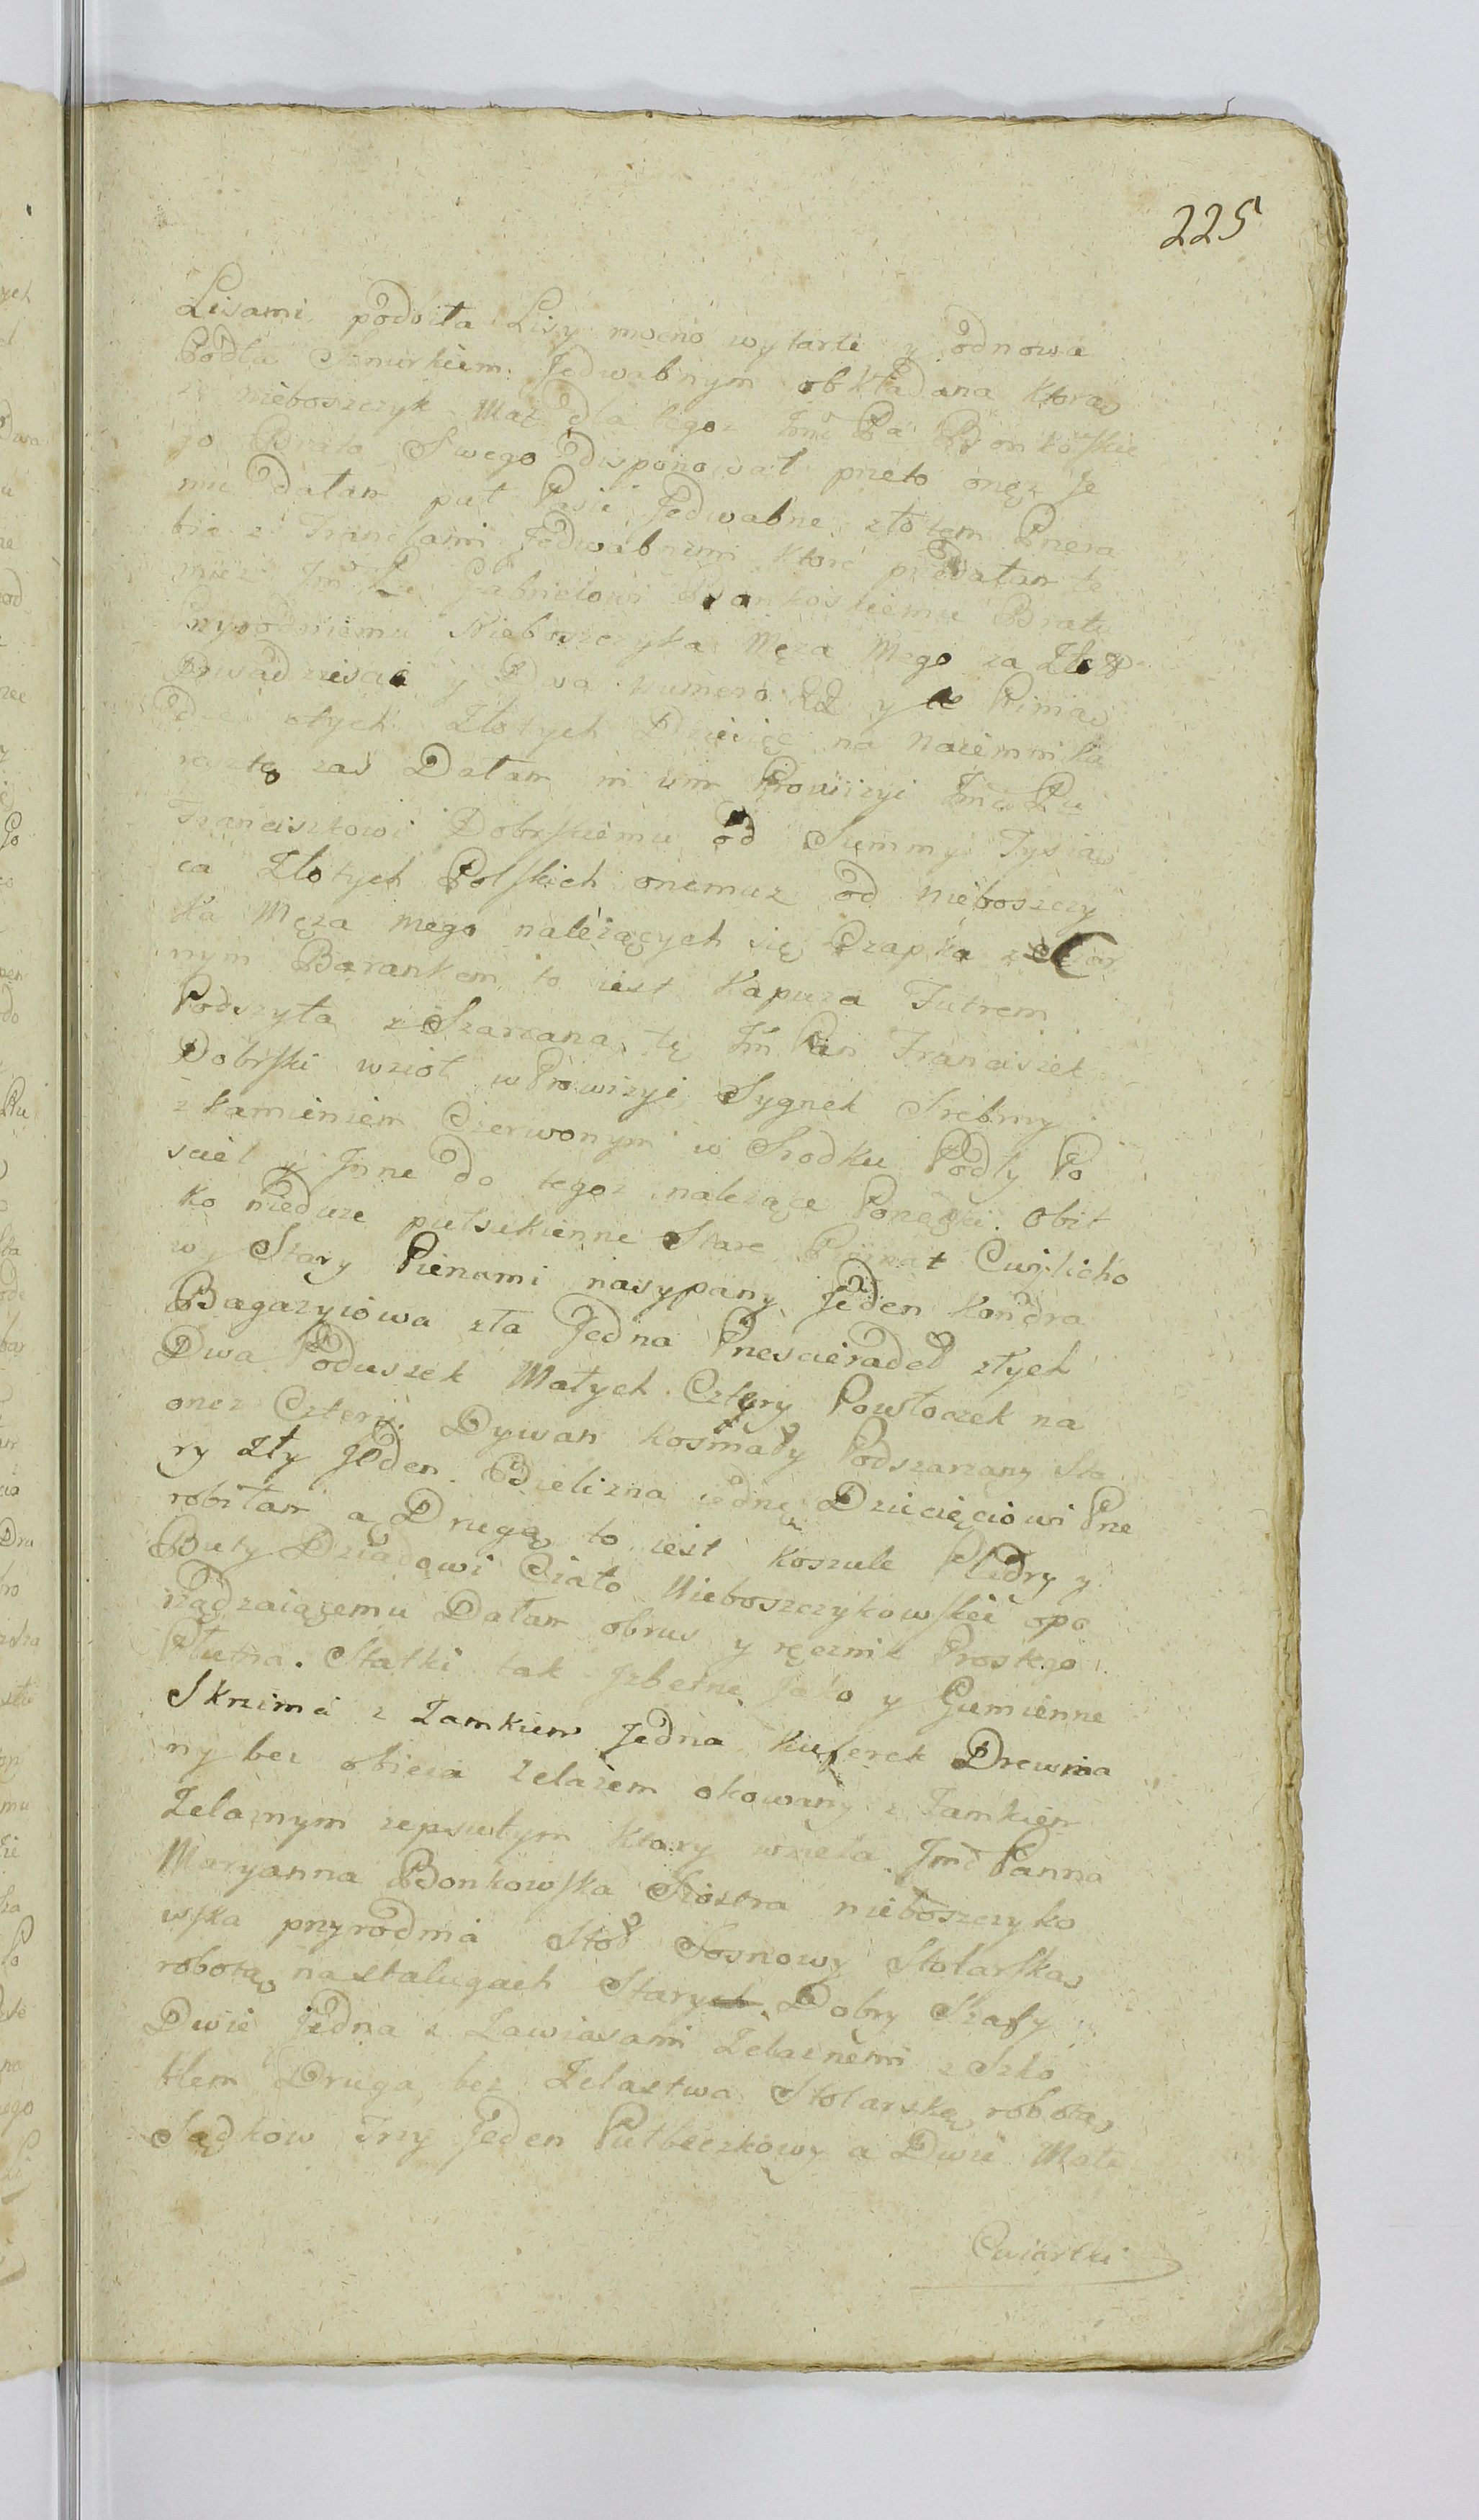 225
Lisami podbita Lisy mocno wytarte y odnowa
Podła Sznurkiem Jedwabnym obkładana ktorą
nieboszczyk Mąż dla tegoz Jmć Pa Bonkoskie
go Brata Swego disponował przeto onęz Je
mu dałam puł Pasie Jedwabne złotem Przera
bia z Franelami Jedwabnemi ktore przedałam te
muz Jmć Pa Gabrielowi Bonkoskiemu Bratu
Przyrodniemu Nieboszczyka Męza Mego za Złott
Dwadziescia y Dwa numero 22 y
otych Złotych Dziesięć na
resztę zas Dałam in vim Prowizyi Jmć Pu
Franciszkowi Dobrskiemu od Summy Tysią
ca Złotych Polskich onemuz od nieboszczy
ka Męza mego nalezących się Czapka z Czar
nym Barankem to iest Kapuza Futrem
Podszyta z Szarzana tę Jm Pan Franciszek
Dobrski wzioł w Prowizyi Sygnek Srebrny
z kamieniem Czerwonym w Srodku Podły Po
sciel y Jnne do tegoz nalezące Porządki. Obit
ko nieduze pułsukienne Stare Pierznat Cwylicho
wy Stary Pierzami nasypany Jeden Kondra
Bagazyiowa zła Jedna Przescieradeł złych
Dwa Poduszek Małych Cztyry Powłoczek na
onez Cztery. Dywan kosmaty Podszarzany Sta
ry Zły Jeden. Bielizna iednę Dziecięciowi Prze
robiłam a Drugą to iest koszule Pludry y
Buty Dziadowi Ciało Nieboszczykowskie opo
rządzaiącemu Dałam obrus y ręcznik Prostego
Płutna. Statki tak Jzbetne Jako y Gumienne
Skrzinia z Zamkiem Jedna kuferek Drewnia
ny bez obicia Zelazem okowany z Zamkiem
Zelaznym zepsutym ktory wzieła Jmć Panna
Maryanna Bonkowska Siostra nieboszczyko
wska przyrodnia Stoł Sosnowy Stolarską
robotą na stalugach Starych Dobry Szafy
Dwie Jedna z Zawiasami Zelaznemi z Szko
blem Druga bez Zelastwa Stolarską robotą
Sądkow Trzy Jeden Pułbeczkowy a Dwie Małe
Cwiartki